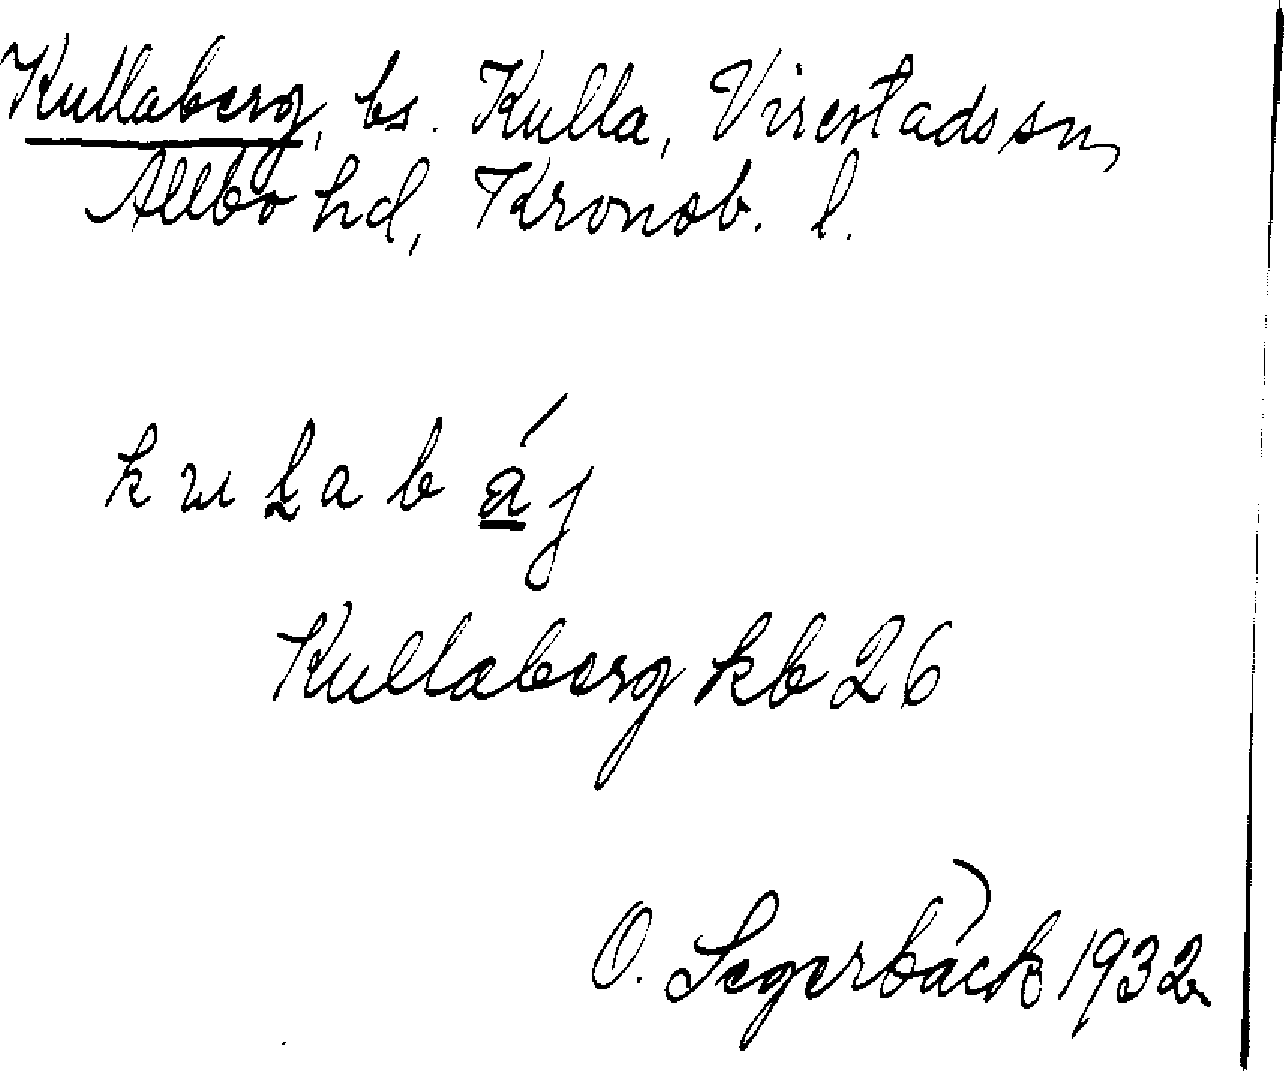 Kullaberg, bs. Kulla, Virestads sn,
Allbo hd, Kronob. l.
kulabáj
Kullaberg kb 26
O. Segerbäck 1932